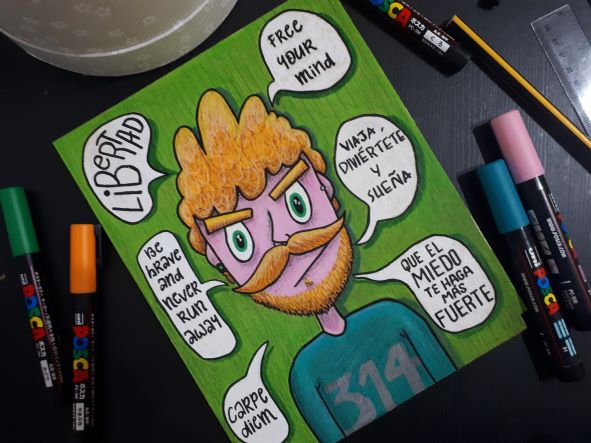 FREE
YOUR
Mind
LiBERT
AD
VIAJA,
DIVIÉRTETE
Y
SUEÑA
BE
brave
and
never
RUN
away
QUE EL
MIEDO
TE HAGA
MÁS
FUERTE
CARPE
diem
314
POSCA
POSCA
POSCA
POSCA
POSCA